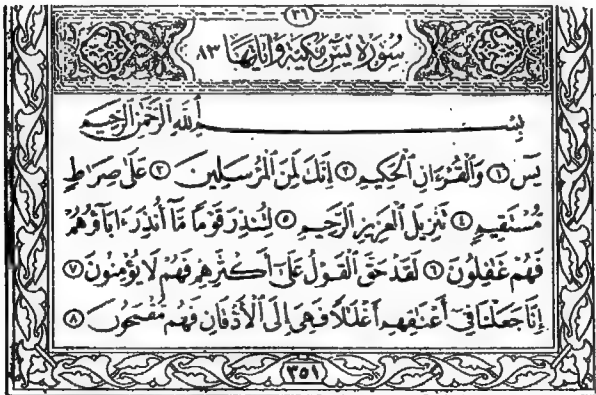 ٣٦
سُورَةُ يسٓ مَكِّيَّة وَآيَاتُهَا ٨٣
بِسْمِ ٱللَّهِ ٱلرَّحْمَٰنِ ٱلرَّحِيمِ
يسٓ ١ وَٱلْقُرْءَانِ ٱلْحَكِيمِ ٢ إِنَّكَ لَمِنَ ٱلْمُرْسَلِينَ ٣ عَلَىٰ صِرَٰطٍ
مُّسْتَقِيمٍ ٤ تَنزِيلَ ٱلْعَزِيزِ ٱلرَّحِيمِ ٥ لِتُنذِرَ قَوْمًا مَّآ أُنذِرَ ءَابَآؤُهُمْ
فَهُمْ غَٰفِلُونَ ٦ لَقَدْ حَقَّ ٱلْقَوْلُ عَلَىٰٓ أَكْثَرِهِمْ فَهُمْ لَا يُؤْمِنُونَ ٧
إِنَّا جَعَلْنَا فِىٓ أَعْنَٰقِهِمْ أَغْلَٰلًا فَهِىَ إِلَى ٱلْأَذْقَانِ فَهُم مُّقْمَحُونَ ٨
٣٥١